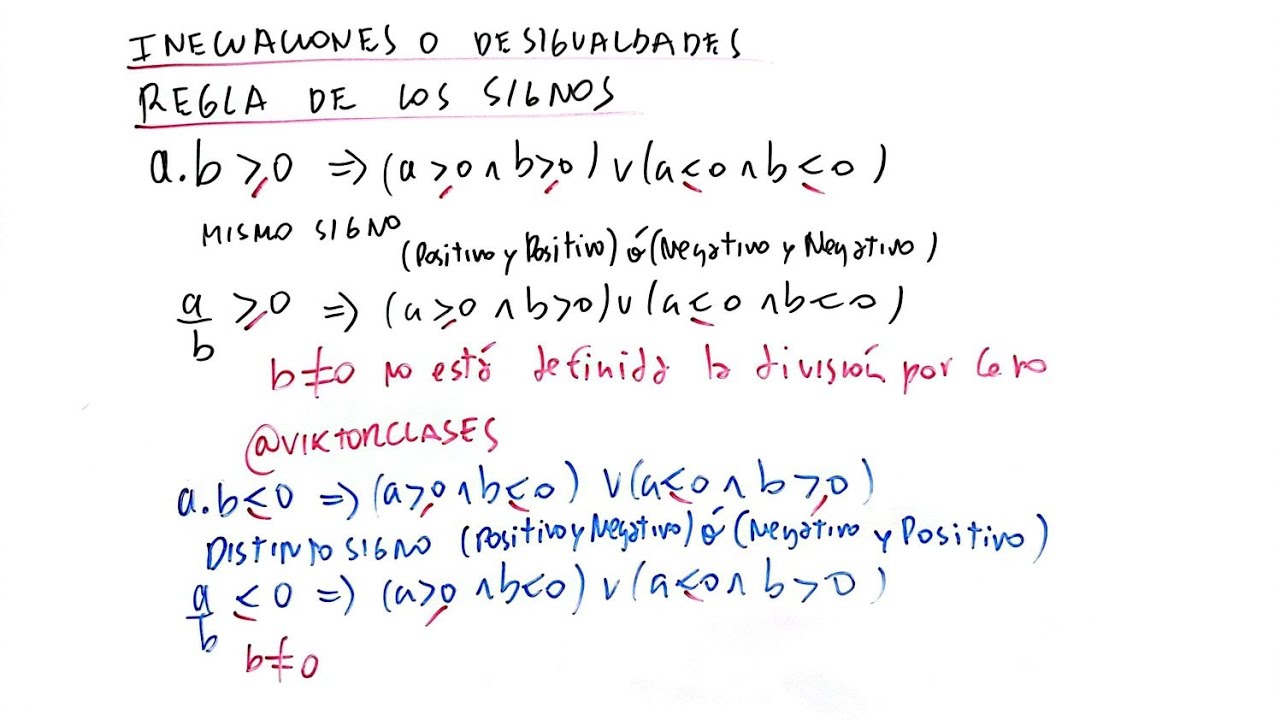 INECUACIONES O DESIGUALDADES
REGLA DE LOS SIGNOS
a.b ≥ 0 => (a ≥ 0 ∧ b ≥ 0) ∨ (a ≤ 0 ∧ b ≤ 0)
MISMO SIGNO (Positivo y Positivo) ó (Negativo y Negativo)
a/b ≥ 0 => (a ≥ 0 ∧ b > 0) ∨ (a ≤ 0 ∧ b < 0)
b ≠ 0 no está definida la división por Cero
@VIKTORCLASES
a.b ≤ 0 => (a ≥ 0 ∧ b ≤ 0) ∨ (a ≤ 0 ∧ b ≥ 0)
DISTINTO SIGNO (Positivo y Negativo) ó (Negativo y Positivo)
a/b ≤ 0 => (a ≥ 0 ∧ b < 0) ∨ (a ≤ 0 ∧ b > 0)
b ≠ 0